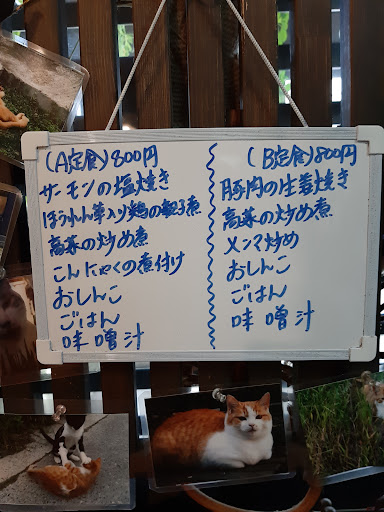 (A定食)800円
サーモンの塩焼き
ほうれん草入り鶏の親子煮
高菜の炒め煮
こんにゃくの煮付け
おしんこ
ごはん
味噌汁
(B定食)800円
豚肉の生姜焼き
高菜の炒め煮
メンマ炒め
おしんこ
ごはん
味噌汁